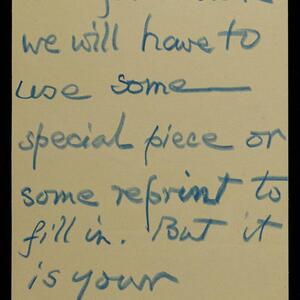 we will have to
use some
special piece or
some reprint to
fill in. But it
is your